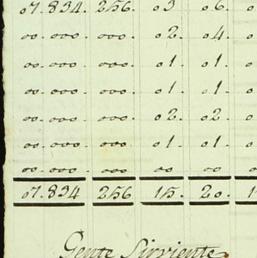 07.834 256. 03. 06. 0
00.000. 000. 02. 04. 0
00.000. 000. 01. 01. 0
00.000. 000. 01. 01. 0
00.000. 000. 02. 02. 0
00.000. 000 01. 01. 0
00.000. 000 00. 00 0
07.834 256 15. 20. 1
Gente Sirviente